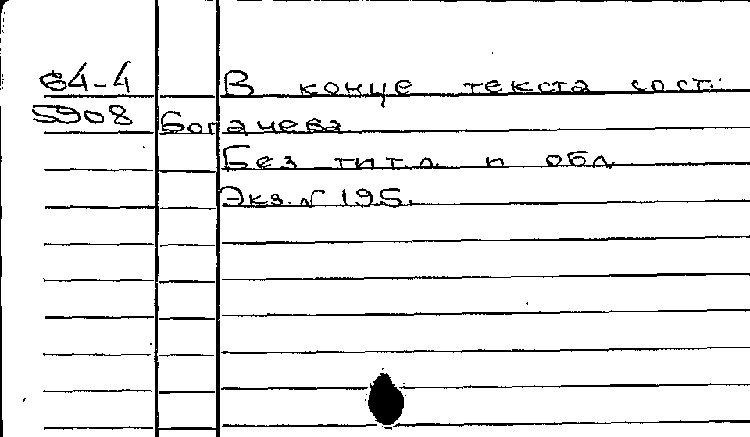 64-4 В конце текста сост.:
5908 Богачева
Без тит. л. и обл.
Экз. № 195.